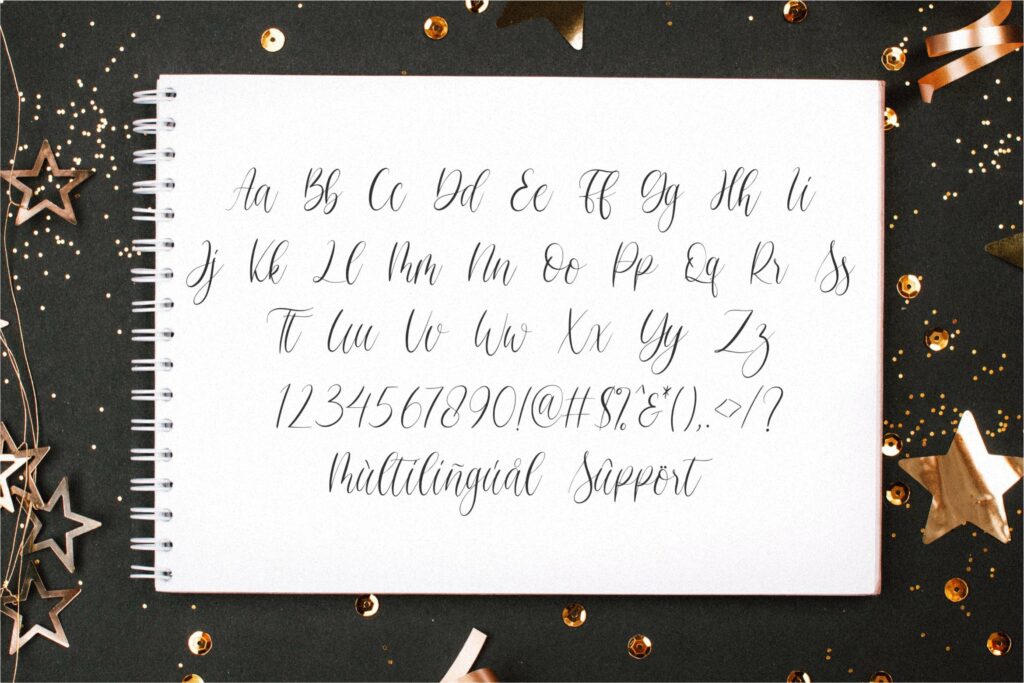 Aa Bb Cc Dd Ee Ff Gg Hh Ii
Jj Kk Ll Mm Nn Oo Pp Qq Rr Ss
Tt Uu Vv Ww Xx Yy Zz
1234567890!@#$%^&*(),.<>/?
Mùltiliñgúál Sûppört